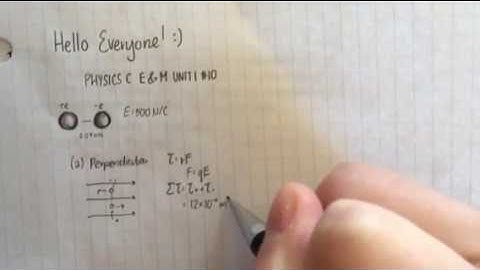 Hello Everyone! :)
PHYSICS C E&M UNIT 1 #10
+e -e E=500 N/C
(a) Perpendicular τ=rF
F=qE
Στ=τ₊+τ₋